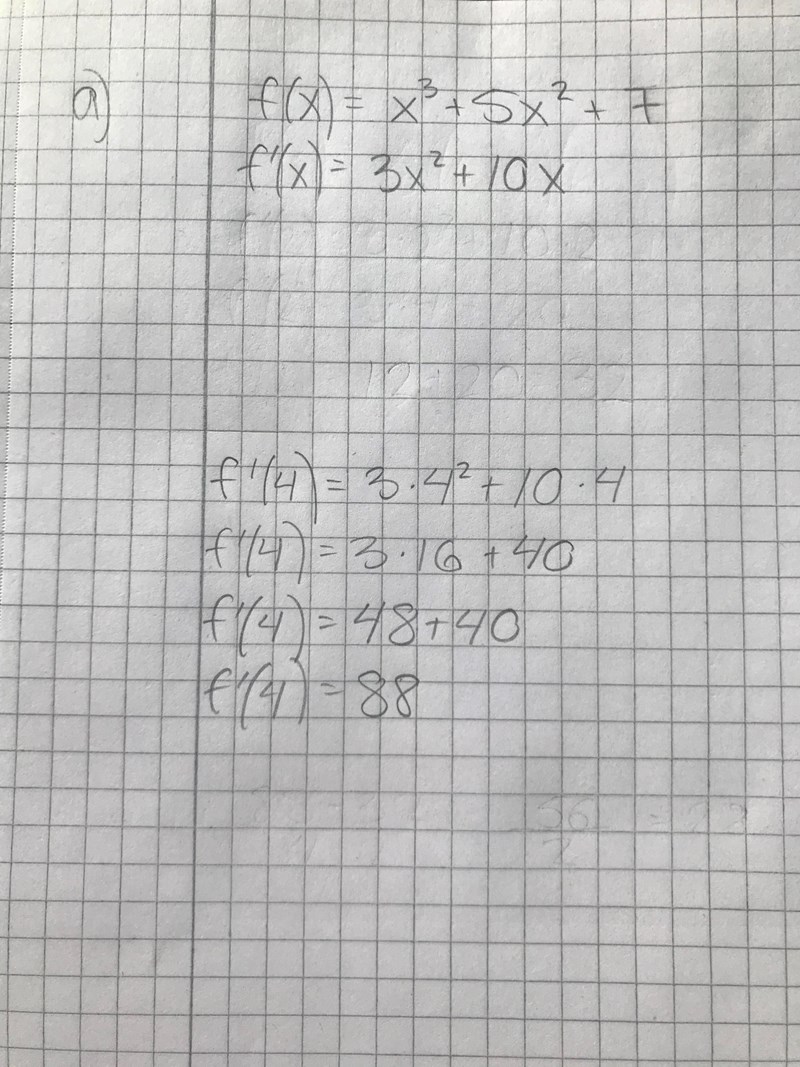 a) f(x) = x³ + 5x² + 7
f'(x) = 3x² + 10x
12+20 = 32
f'(4) = 3·4² + 10·4
f'(4) = 3·16 + 40
f'(4) = 48+40
f'(4) = 88
56
2